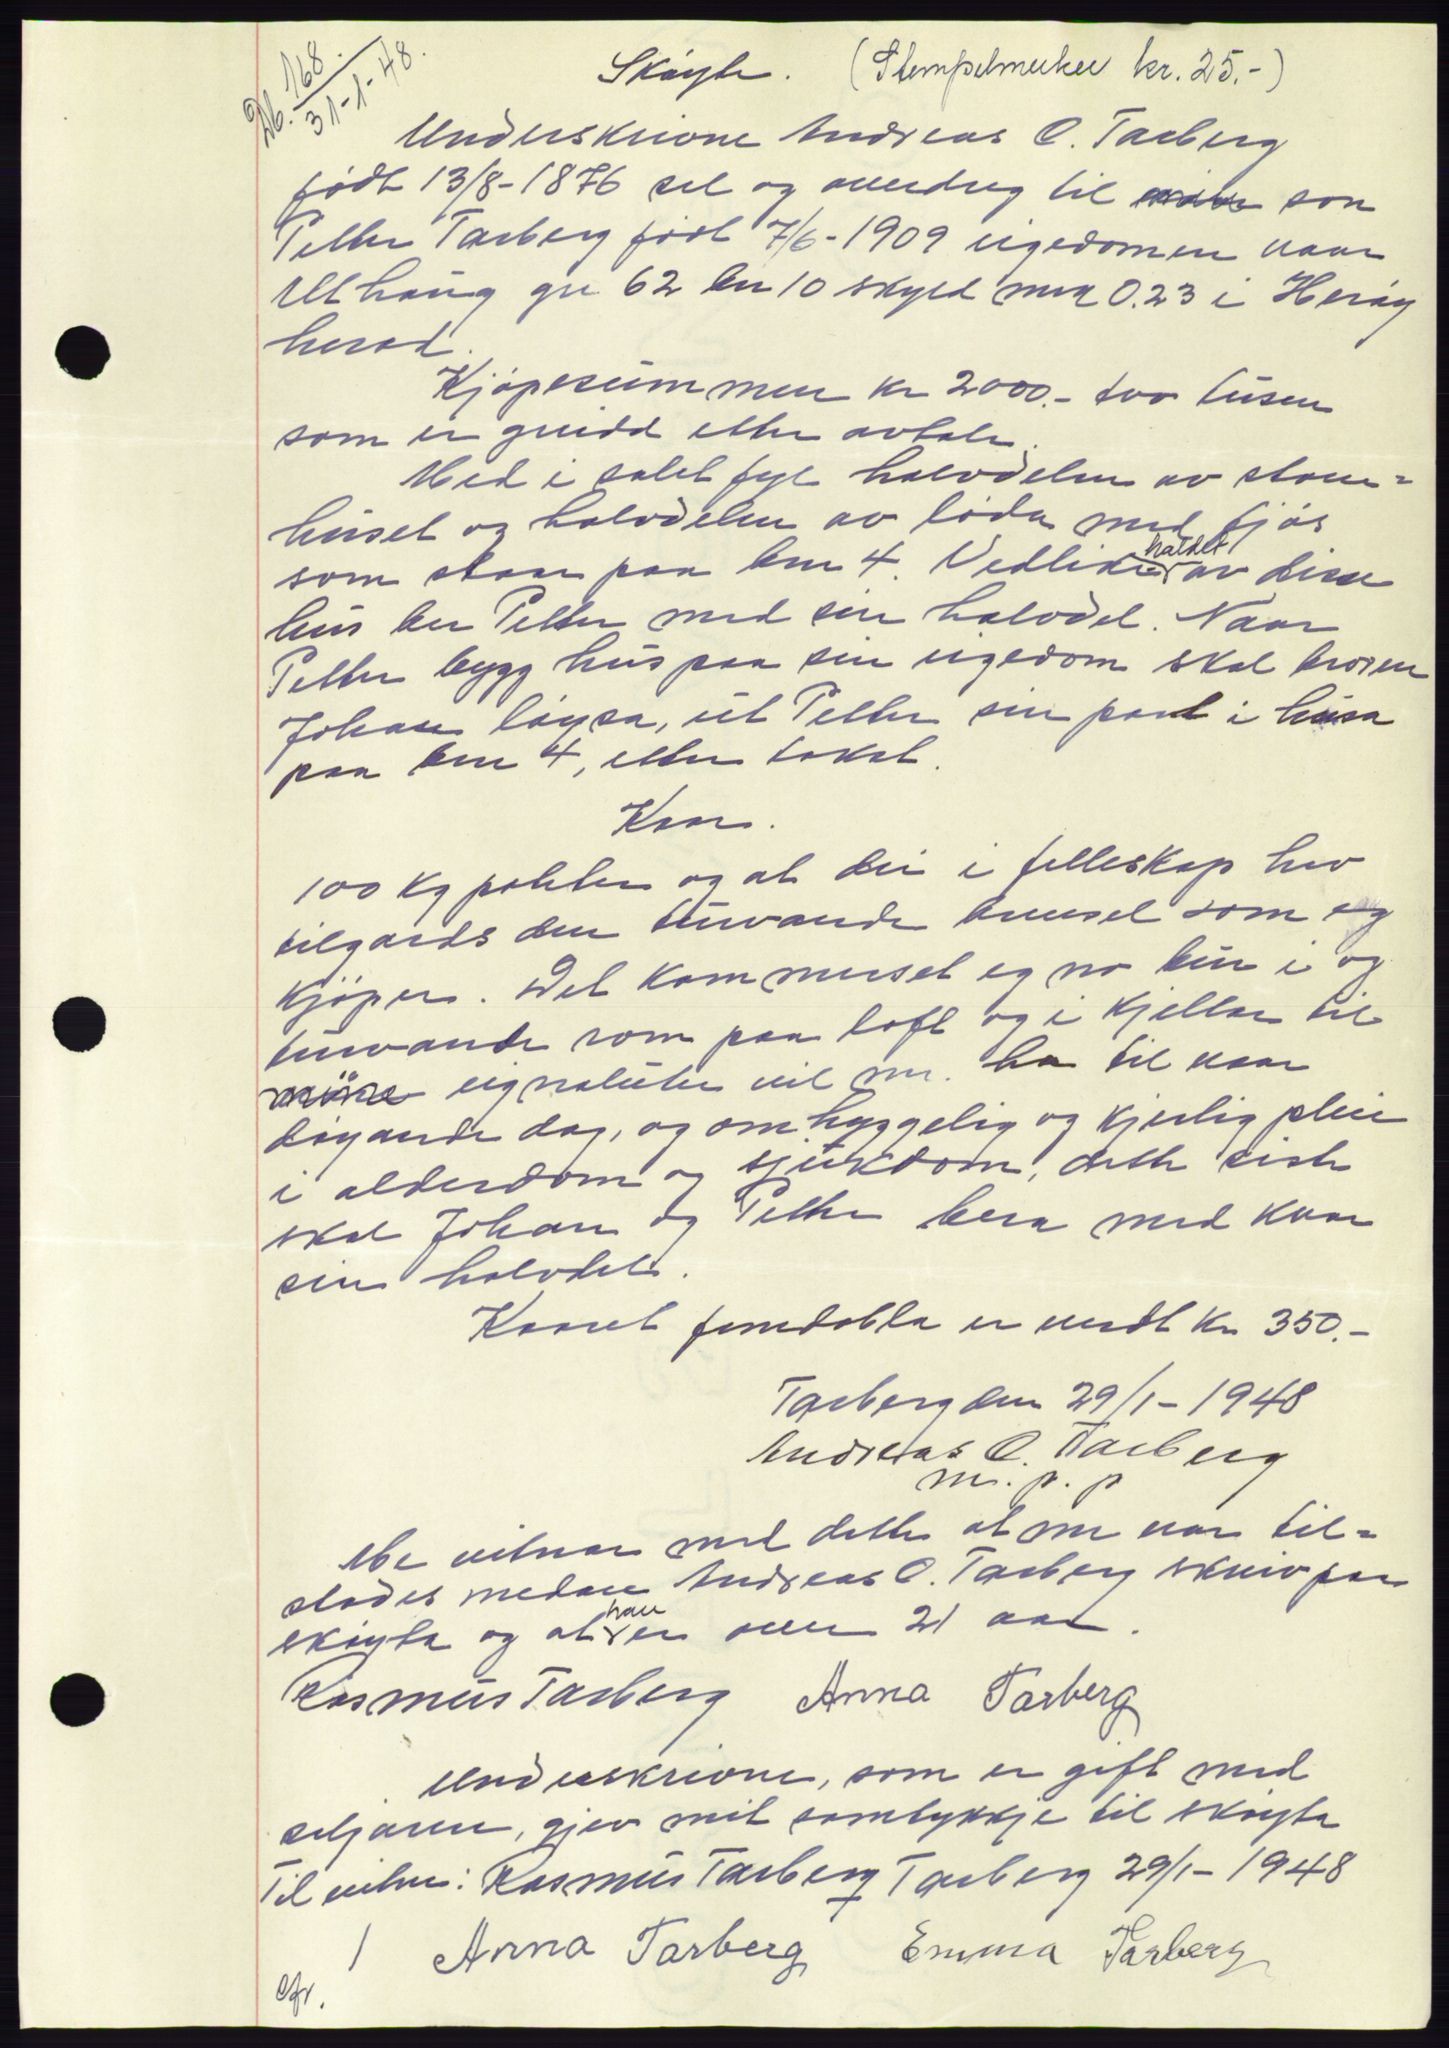 Db. 168.
31-1-48.
Skøyte. (Stempelmerker kr. 25.-)
Underskrivne Andreas O. Tarberg
født 13/8-1876 sel og overdreg til min son
Petter Tarberg født 7/6-1909 eigedomen vaar
Uthaug gn 62 bn 10 skyld mrk 0.23 i Herøy
herad.
Kjøpesummen kr 2000.- tvo tusen
som er greidd etter avtale.
Med i salet fyl halvdelen av stove=
huset og halvdelen av løda med fjøs
som staar paa bnr 4. Vedlikehaldet av disse
hus ber Petter med sin halvdel. Naar
Petter bygg hus paa sin eigedom skal broren
Johan løysa, ut Petter sin part i husa
paa bnr 4, etter takst.
Kaar.
100 kg poteter og at dei i felleskap hev
tilgards den turvande brensel som eg
kjøper. Det kammerset eg no bur i og
turvande rom paa loft og i kjellar til
mine eignaluter vil me ha til vaar
døyande dag, og omhyggelig og kjerlig pleie
i alderdom og sjukdom, dette siste
skal Johan og Petter bera med kvar
sin halvdel.
Kaaret femdobla er verdt kr 350.-
Tarberg den 29/1-1948
Andreas O. Tarberg
m. p. p
Me vitnar med dette at me var til=
stades medan Andreas O. Tarberg skreiv paa
skøyta og at han er over 21 aar.
Rasmus Tarberg Anna Tarberg
Underskrivne, som er gift med
seljaren, gjev mit samtykkje til skøyta
Til vitne: Rasmus Tarberg Tarberg 29/1-1948
Anna Tarberg Emma Tarberg
Efr.